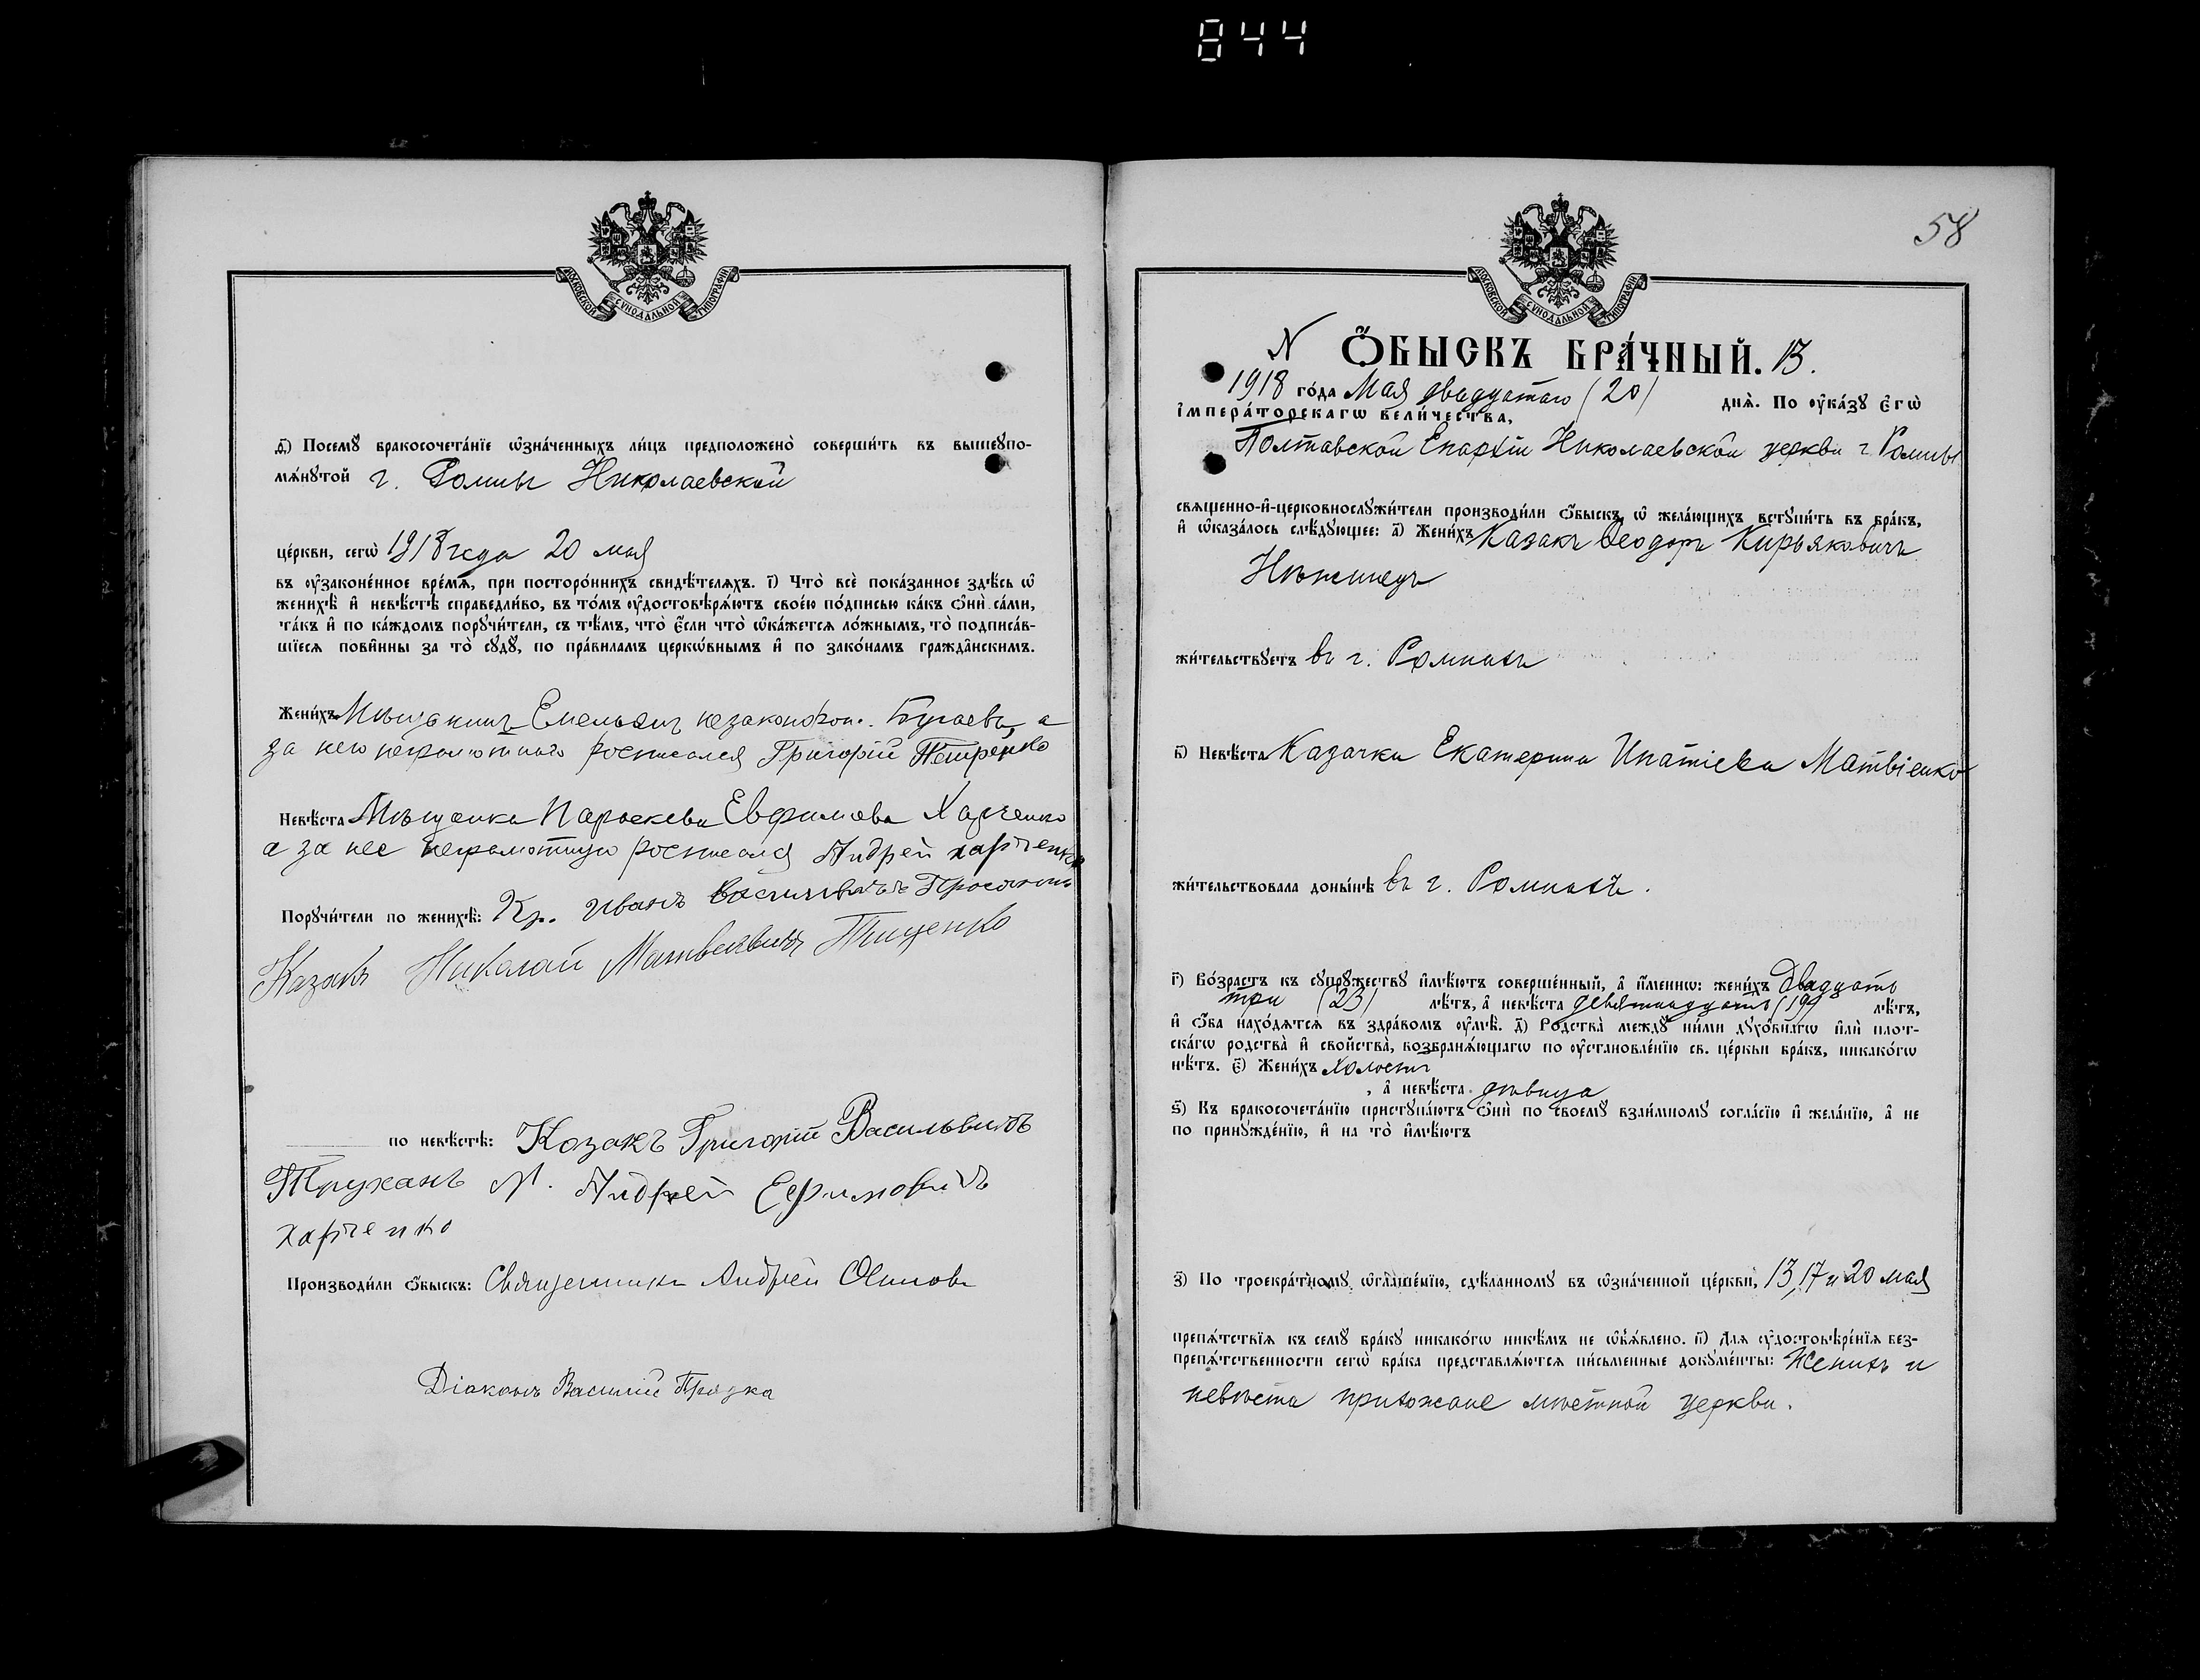 844
МОСКОВСКОЙ СѴНОДАЛЬНОЙ ТИПОГРАФІИ
Ѳ҃) Посемꙋ̀ бракосочета́нїе ѡ҆зна́ченныхъ ли́цъ предположено̀ соверши́ть въ вышеꙋпо-
мѧ́нꙋтой г. Ромны Николаевской
це́ркви, сегѡ̀ 1918 года 20 мая
въ ᲂу҆законе́нное вре́мѧ, при посторо́ннихъ свидѣ́телѧхъ. І҃) Что̀ всѐ пока́занное здѣ́сь ѡ҆
женихѣ̀ и҆ невѣ́стѣ справедли́во, въ то́мъ ᲂу҆достовѣрѧ́ютъ свое́ю по́дписью ка́къ ѻ҆нѝ са́ми,
та́къ и҆ по ка́ждомъ порꙋчи́тели, съ тѣ́мъ, что̀ є҆́сли что̀ ѡ҆ка́жетсѧ ло́жнымъ, то̀ подписа́в-
шїесѧ пови́нны за то̀ сꙋдꙋ̀, по пра́виламъ церкѡ́внымъ и҆ по зако́намъ гражда̂нскимъ.
Жени́хъ Мѣщанинъ Емельян незаконорож. Бугаевъ, а
за него неграмотнаго росписался Григорій Петренко
Невѣ́ста Мѣщанка Параскева Евфимова Харченко
а за нее неграмотную росписался Андрей харченко
Порꙋчи́тели по женихѣ̀: Кр. Иванъ Васильевичъ
Казакъ Николай Матвеевичъ Тищенко
по невѣ́стѣ: Козакъ Григорій Васильвичъ
Тружанъ М. Андрей Ефимовичъ
харченко
Производи́ли ѻ҆́быскъ: Священникъ Андрей Осиповъ
Діаконъ Василій
58
МОСКОВСКОЙ СѴНОДАЛЬНОЙ ТИПОГРАФІИ
N Ѻ҆́БЫСКЪ БРА́ЧНЫЙ. 13.
1918 го́да Мая двадцатаго (20) днѧ̀. По ᲂу҆ка́зꙋ є҆гѡ̀
і҆мпера́торскагѡ вели́чества,
Полтавской Епархіи Николаевской церкви г. Ромны
свѧще́нно-и҆-церковнослꙋжи́тели производи́ли ѻ҆́быскъ ѡ҆ жела́ющихъ встꙋпи́ть въ бра́къ,
и҆ ѡ҆каза́лось слѣ́дꙋющее: а҃) Жени́хъ Казакъ Ѳеодоръ Кирьяковичъ
Нѣжинецъ
жи́тельствꙋетъ въ г. Ромнахъ
в҃) Невѣ́ста Казачка Екатерина Ипатіева Матвіенко
жи́тельствовала доны́нѣ въ г. Ромнахъ.
г҃) Во́зрастъ къ сꙋпрꙋ́жествꙋ и҆мѣ́ютъ соверше́нный, а҆ и҆́меннѡ: жени́хъ двадцать
три (23) лѣ́тъ, а҆ невѣ́ста девятнадцать (19) лѣ́тъ,
и҆ ѻ҆́ба нахо́дѧтсѧ въ здра́вомъ ᲂу҆мѣ̀. д҃) Родства̀ междꙋ̀ ни́ми дꙋхо́внагѡ и҆лѝ плот-
ска́гѡ родства̀ и҆ сво́йства̀, возбранѧ́ющагѡ по ᲂу҆становле́нїю св. це́ркви бра́къ, никако́гѡ
нѣ́тъ. є҃) Жени́хъ холостъ
, а҆ невѣ́ста дѣвица
ѕ҃) Къ бракосочета́нїю пристꙋпа́ютъ ѻ҆нѝ по своемꙋ̀ взаи́мномꙋ согла́сїю и҆ жела́нїю, а҆ не
по принꙋжде́нїю, и҆ на то̀ и҆мѣ́ютъ
з҃) По троекра́тномꙋ ѡ҆глаше́нїю, сдѣ́ланномꙋ въ ѡ҆зна́ченной це́ркви, 13, 17 и 20 мая
препѧ́тствїѧ къ семꙋ̀ бра́кꙋ никако́гѡ никѣ́мъ не ѡ҆б̾ѧ́влено. и҃) Длѧ ᲂу҆достовѣре́нїѧ без-
препѧ́тственности сегѡ̀ бра́ка представлѧ́ютсѧ пи́сьменные докꙋме́нты: Женихъ и
невѣста прихожане мѣстной церкви.